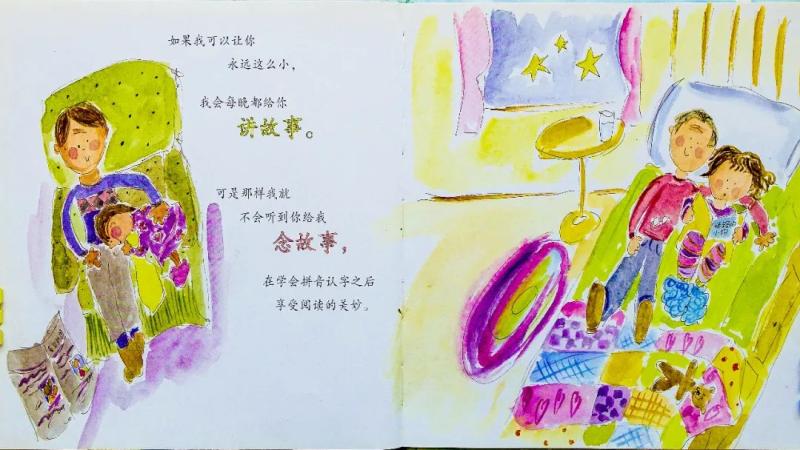 如果我可以让你
永远这么小,
我会每晚都给你
讲故事。
可是那样我就
不会听到你给我
念故事,
在学会拼音认字之后
享受阅读的美妙。